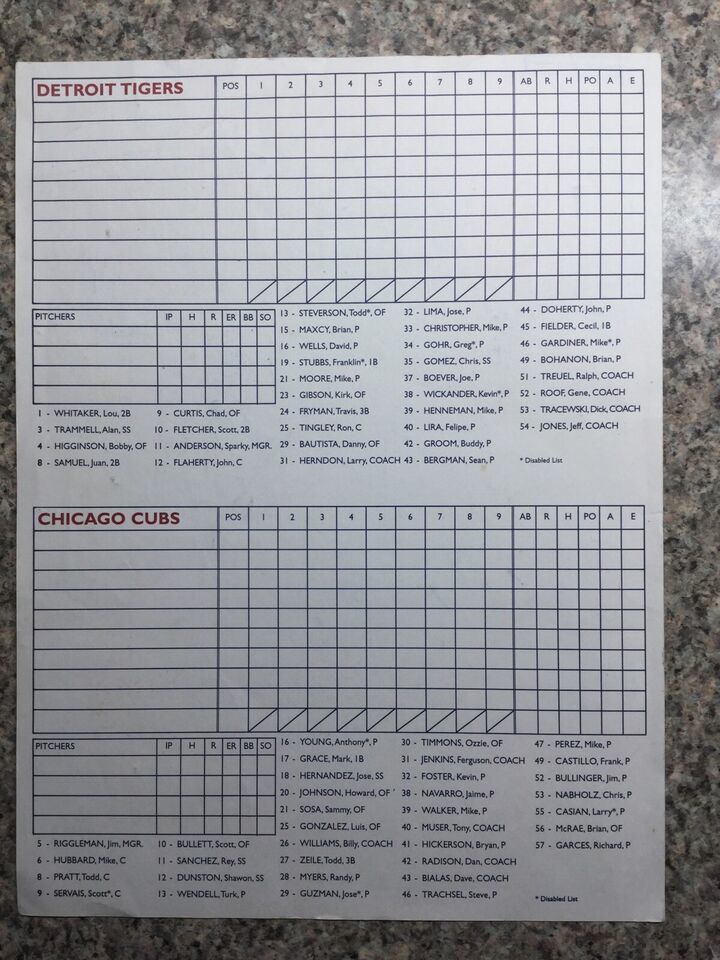 DETROIT TIGERS POS 1 2 3 4 5 6 7 8 9 AB R H PO A E
PITCHERS IP H R ER BB SO
1 - WHITAKER, Lou, 2B
3 - TRAMMELL, Alan, SS
4 - HIGGINSON, Bobby, OF
8 - SAMUEL, Juan, 2B
9 - CURTIS, Chad, OF
10 - FLETCHER, Scott, 2B
11 - ANDERSON, Sparky, MGR.
12 - FLAHERTY, John, C
13 - STEVERSON, Todd*, OF
15 - MAXCY, Brian, P
16 - WELLS, David, P
19 - STUBBS, Franklin*, 1B
21 - MOORE, Mike, P
23 - GIBSON, Kirk, OF
24 - FRYMAN, Travis, 3B
25 - TINGLEY, Ron, C
29 - BAUTISTA, Danny, OF
31 - HERNDON, Larry, COACH
32 - LIMA, Jose, P
33 - CHRISTOPHER, Mike, P
34 - GOHR, Greg*, P
35 - GOMEZ, Chris, SS
37 - BOEVER, Joe, P
38 - WICKANDER, Kevin*, P
39 - HENNEMAN, Mike, P
40 - LIRA, Felipe, P
42 - GROOM, Buddy, P
43 - BERGMAN, Sean, P
44 - DOHERTY, John, P
45 - FIELDER, Cecil, 1B
46 - GARDINER, Mike*, P
49 - BOHANON, Brian, P
51 - TREUEL, Ralph, COACH
52 - ROOF, Gene, COACH
53 - TRACEWSKI, Dick, COACH
54 - JONES, Jeff, COACH
* Disabled List
CHICAGO CUBS POS 1 2 3 4 5 6 7 8 9 AB R H PO A E
PITCHERS IP H R ER BB SO
5 - RIGGLEMAN, Jim, MGR.
6 - HUBBARD, Mike, C
8 - PRATT, Todd, C
9 - SERVAIS, Scott*, C
10 - BULLETT, Scott, OF
11 - SANCHEZ, Rey, SS
12 - DUNSTON, Shawon, SS
13 - WENDELL, Turk, P
16 - YOUNG, Anthony*, P
17 - GRACE, Mark, 1B
18 - HERNANDEZ, Jose, SS
20 - JOHNSON, Howard, OF
21 - SOSA, Sammy, OF
25 - GONZALEZ, Luis, OF
26 - WILLIAMS, Billy, COACH
27 - ZEILE, Todd, 3B
28 - MYERS, Randy, P
29 - GUZMAN, Jose*, P
30 - TIMMONS, Ozzie, OF
31 - JENKINS, Ferguson, COACH
32 - FOSTER, Kevin, P
38 - NAVARRO, Jaime, P
39 - WALKER, Mike, P
40 - MUSER, Tony, COACH
41 - HICKERSON, Bryan, P
42 - RADISON, Dan, COACH
43 - BIALAS, Dave, COACH
46 - TRACHSEL, Steve, P
47 - PEREZ, Mike, P
49 - CASTILLO, Frank, P
52 - BULLINGER, Jim, P
53 - NABHOLZ, Chris, P
55 - CASIAN, Larry*, P
56 - McRAE, Brian, OF
57 - GARCES, Richard, P
* Disabled List